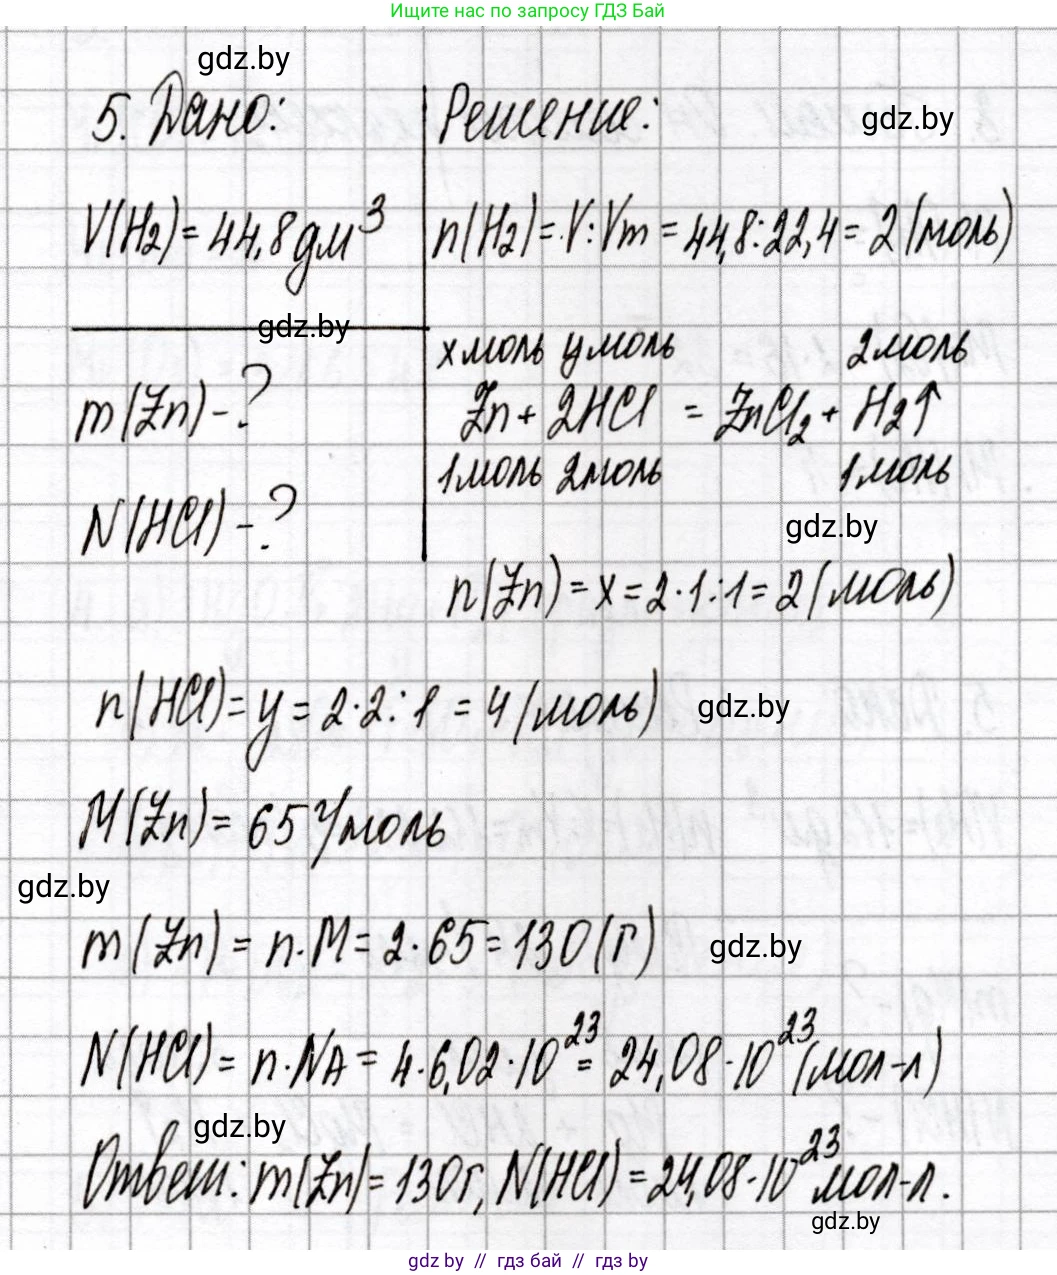 Ищите нас по запросу ГДЗ Бай
gdz.by
5. Дано:
Решение:
gdz.by
V(H₂) = 44,8 дм³
n(H₂) = V : Vm = 44,8 : 22,4 = 2 (моль)
gdz.by
x моль y моль 2 моль
m(Zn) - ?
Zn + 2HCl = ZnCl₂ + H₂↑
1 моль 2 моль 1 моль
N(HCl) - ?
gdz.by
n(Zn) = x = 2 · 1 : 1 = 2 (моль)
n(HCl) = y = 2 · 2 : 1 = 4 (моль)
gdz.by
M(Zn) = 65 г/моль
gdz.by
m(Zn) = n · M = 2 · 65 = 130 (г)
gdz.by
N(HCl) = n · NA = 4 · 6,02 · 10²³ = 24,08 · 10²³ (мол-л)
gdz.by
Ответ: m(Zn) = 130 г, N(HCl) = 24,08 · 10²³ мол-л.
gdz.by
gdz by // гдз бай // gdz by